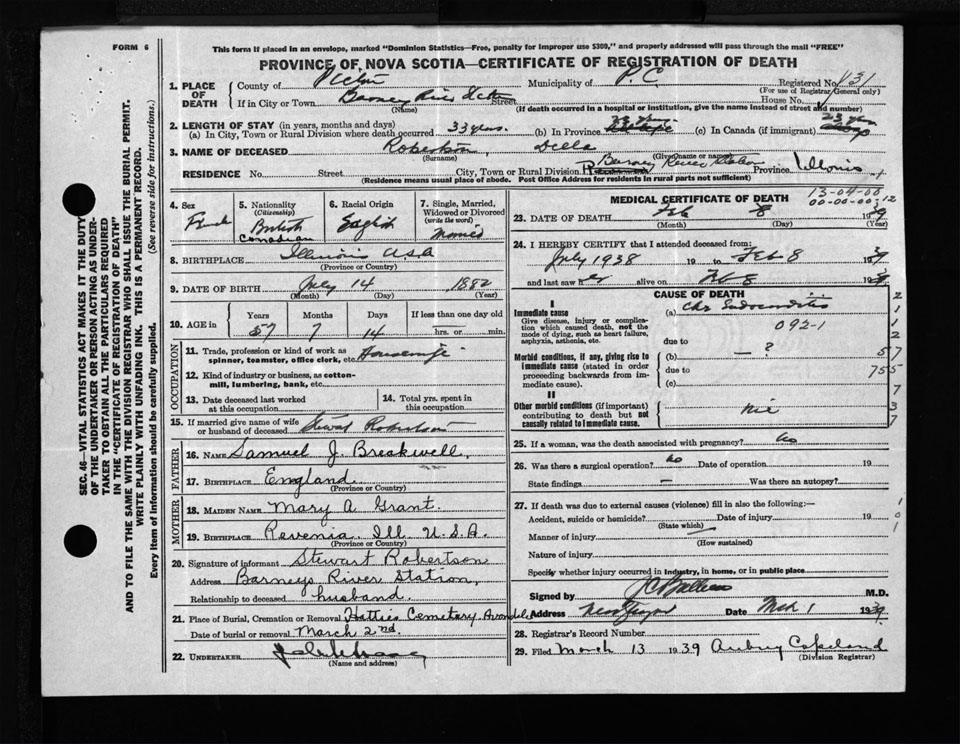 FORM 6
This form if placed in an envelope, marked "Dominion Statistics—Free, penalty for improper use $300," and properly addressed will pass through the mail "FREE"
PROVINCE OF NOVA SCOTIA—CERTIFICATE OF REGISTRATION OF DEATH
SEC. 46—VITAL STATISTICS ACT MAKES IT THE DUTY
OF THE UNDERTAKER OR PERSON ACTING AS UNDER-
TAKER TO OBTAIN ALL THE PARTICULARS REQUIRED
IN THE "CERTIFICATE OF REGISTRATION OF DEATH"
AND TO FILE THE SAME WITH THE DIVISION REGISTRAR WHO SHALL ISSUE THE BURIAL PERMIT.
WRITE PLAINLY WITH UNFADING INK. THIS IS A PERMANENT RECORD.
Every item of Information should be carefully supplied. (See reverse side for instructions.)
1. PLACE OF DEATH County of Pictou Municipality of P.C. Registered No. 431
(For use of Registrar General only)
If in City or Town Barney River Street House No.
(If death occurred in a hospital or institution, give the name instead of street and number)
2. LENGTH OF STAY (in years, months and days)
(a) In City, Town or Rural Division where death occurred 33 years. (b) In Province 33 years. (c) In Canada (if immigrant) 33 years
3. NAME OF DECEASED Robertson, Della
(Surname) (Given name or names)
RESIDENCE No. Street City, Town or Rural Division Barney River Station Province Illinois
(Residence means usual place of abode. Post Office Address for residents in rural parts not sufficient)
4. Sex Female
5. Nationality (Citizenship) British Canadian
6. Racial Origin English
7. Single, Married, Widowed or Divorced (write the word) Married
8. BIRTHPLACE Illinois USA
(Province or Country)
9. DATE OF BIRTH July 14 1882
(Month) (Day) (Year)
10. AGE in Years Months Days If less than one day old
57 7 14 hrs. or min.
OCCUPATION
11. Trade, profession or kind of work as spinner, teamster, office clerk, etc. Housewife
12. Kind of industry or business, as cotton-mill, lumbering, bank, etc.
13. Date deceased last worked at this occupation
14. Total yrs. spent in this occupation
15. If married give name of wife or husband of deceased Stewart Robertson
FATHER
16. NAME Samuel J. Breakwell,
17. BIRTHPLACE England
(Province or Country)
MOTHER
18. MAIDEN NAME Mary A Grant.
19. BIRTHPLACE Revenia Ill U.S.A.
(Province or Country)
20. Signature of informant Stewart Robertson
Address Barneys River Station,
Relationship to deceased husband.
21. Place of Burial, Cremation or Removal Hatties Cemetary Avondale
Date of burial or removal March 2nd.
22. UNDERTAKER
(Name and address)
MEDICAL CERTIFICATE OF DEATH
13-04-00
00-00-00; 12
23. DATE OF DEATH Feb 8 1939
(Month) (Day) (Year)
24. I HEREBY CERTIFY that I attended deceased from:
July 1938 19 to Feb 8 1939
and last saw her alive on Feb 8 1939
CAUSE OF DEATH
I
Immediate cause
Give disease, injury or complication which caused death, not the mode of dying, such as heart failure, asphyxia, asthenia, etc.
(a) Chr Endocarditis
092-1
due to
Morbid conditions, if any, giving rise to immediate cause (stated in order proceeding backwards from immediate cause).
(b) — ?
due to
(c)
II
Other morbid conditions (if important) contributing to death but not causally related to immediate cause.
nil
2
1
1
2
57
755
7
3
7
25. If a woman, was the death associated with pregnancy? No
26. Was there a surgical operation? No Date of operation 19
State findings — Was there an autopsy?
27. If death was due to external causes (violence) fill in also the following:
Accident, suicide or homicide? Date of injury 19
(State which)
Manner of injury
(How sustained)
Nature of injury
Specify whether injury occurred in industry, in home, or in public place
1
0
1
Signed by M.D.
Address New Glasgow Date Mch 1 1939
28. Registrar's Record Number
29. Filed March 13 1939 Aubrey Copeland
(Division Registrar)